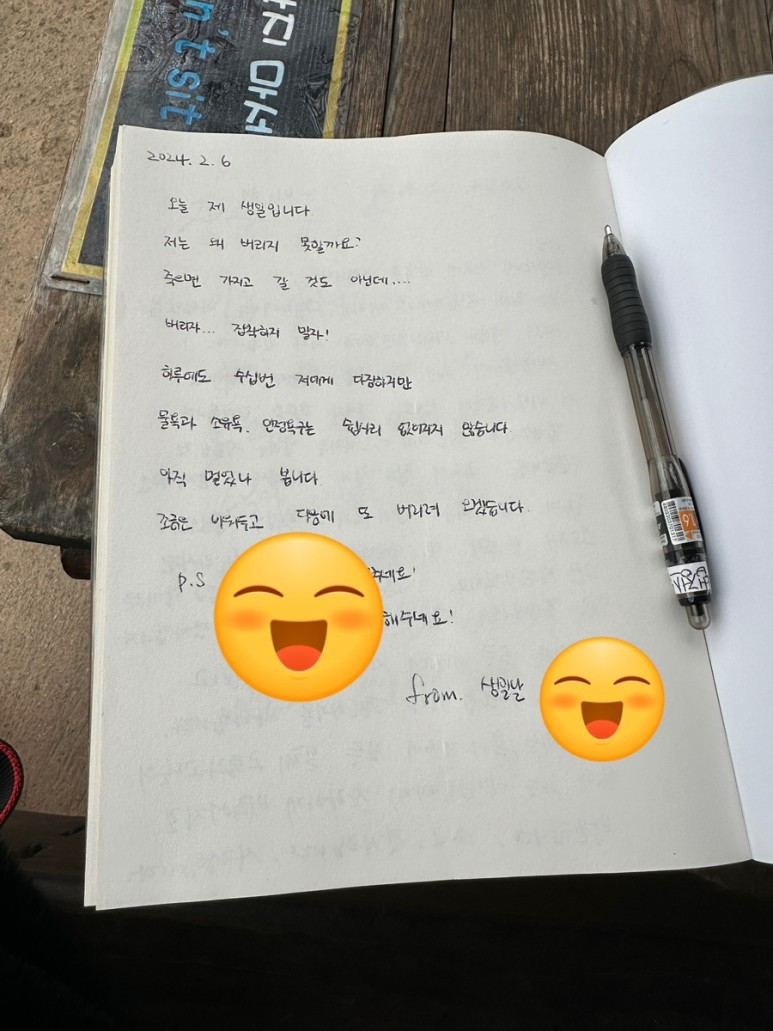 지 마세
n't sit
2024. 2. 6
오늘 제 생일입니다
저는 왜 버리지 못할까요?
죽으면 가지고 갈 것도 아닌데....
버리자... 집착하지 말자!
하루에도 수십번 저에게 다짐하지만
물욕과 소유욕. 인정욕구는 쉽사리 없어지지 않습니다.
아직 멀었나 봅니다
조금은 놔두고 다음에 또 버리려 오겠습니다.
p.S 주세요!
해주세요!
from. 생일날